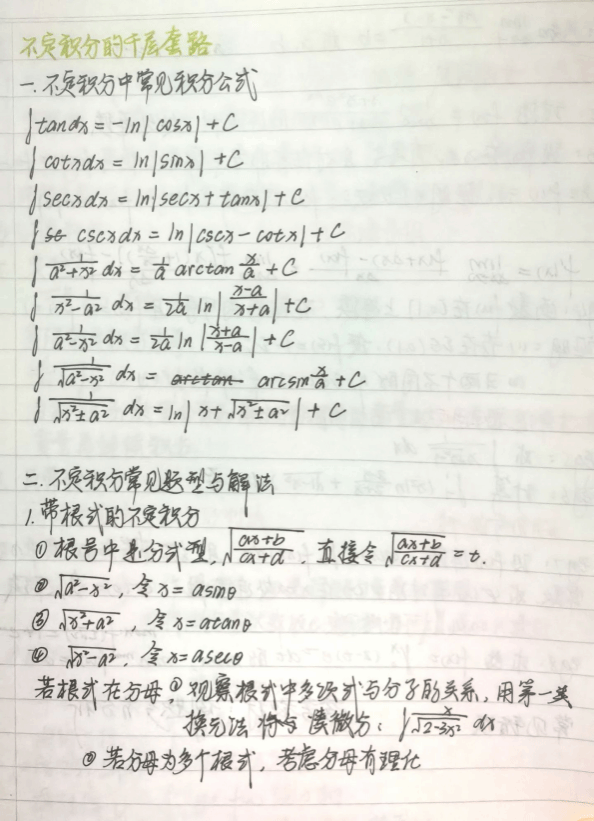 不定积分的千层套路
一.不定积分中常见积分公式
∫tandx = -ln|cosx|+C
∫cotxdx = ln|sinx|+C
∫secxdx = ln|secx+tanx|+C
∫cscxdx = ln|cscx-cotx|+C
∫1/(a²+x²) dx = 1/a arctan x/a + C
∫1/(x²-a²) dx = 1/2a ln|(x-a)/(x+a)|+C
∫1/(a²-x²) dx = 1/2a ln|(x+a)/(x-a)|+C
∫1/√(a²-x²) dx = arcsin x/a + C
∫1/√(x²±a²) dx = ln|x+√(x²±a²)|+C
二.不定积分常见题型与解法
1.带根式的不定积分
①根号中是分式型,√((ax+b)/(cx+d)),直接令√((ax+b)/(cx+d))=t.
②√(a²-x²),令x=asinθ
③√(x²+a²),令x=atanθ
④√(x²-a²),令x=asecθ
若根式在分母①观察根式中多次式与分子的关系,用第一类
换元法 微分:∫x/√(2-3x²) dx
②若分母为多个根式,考虑分母有理化